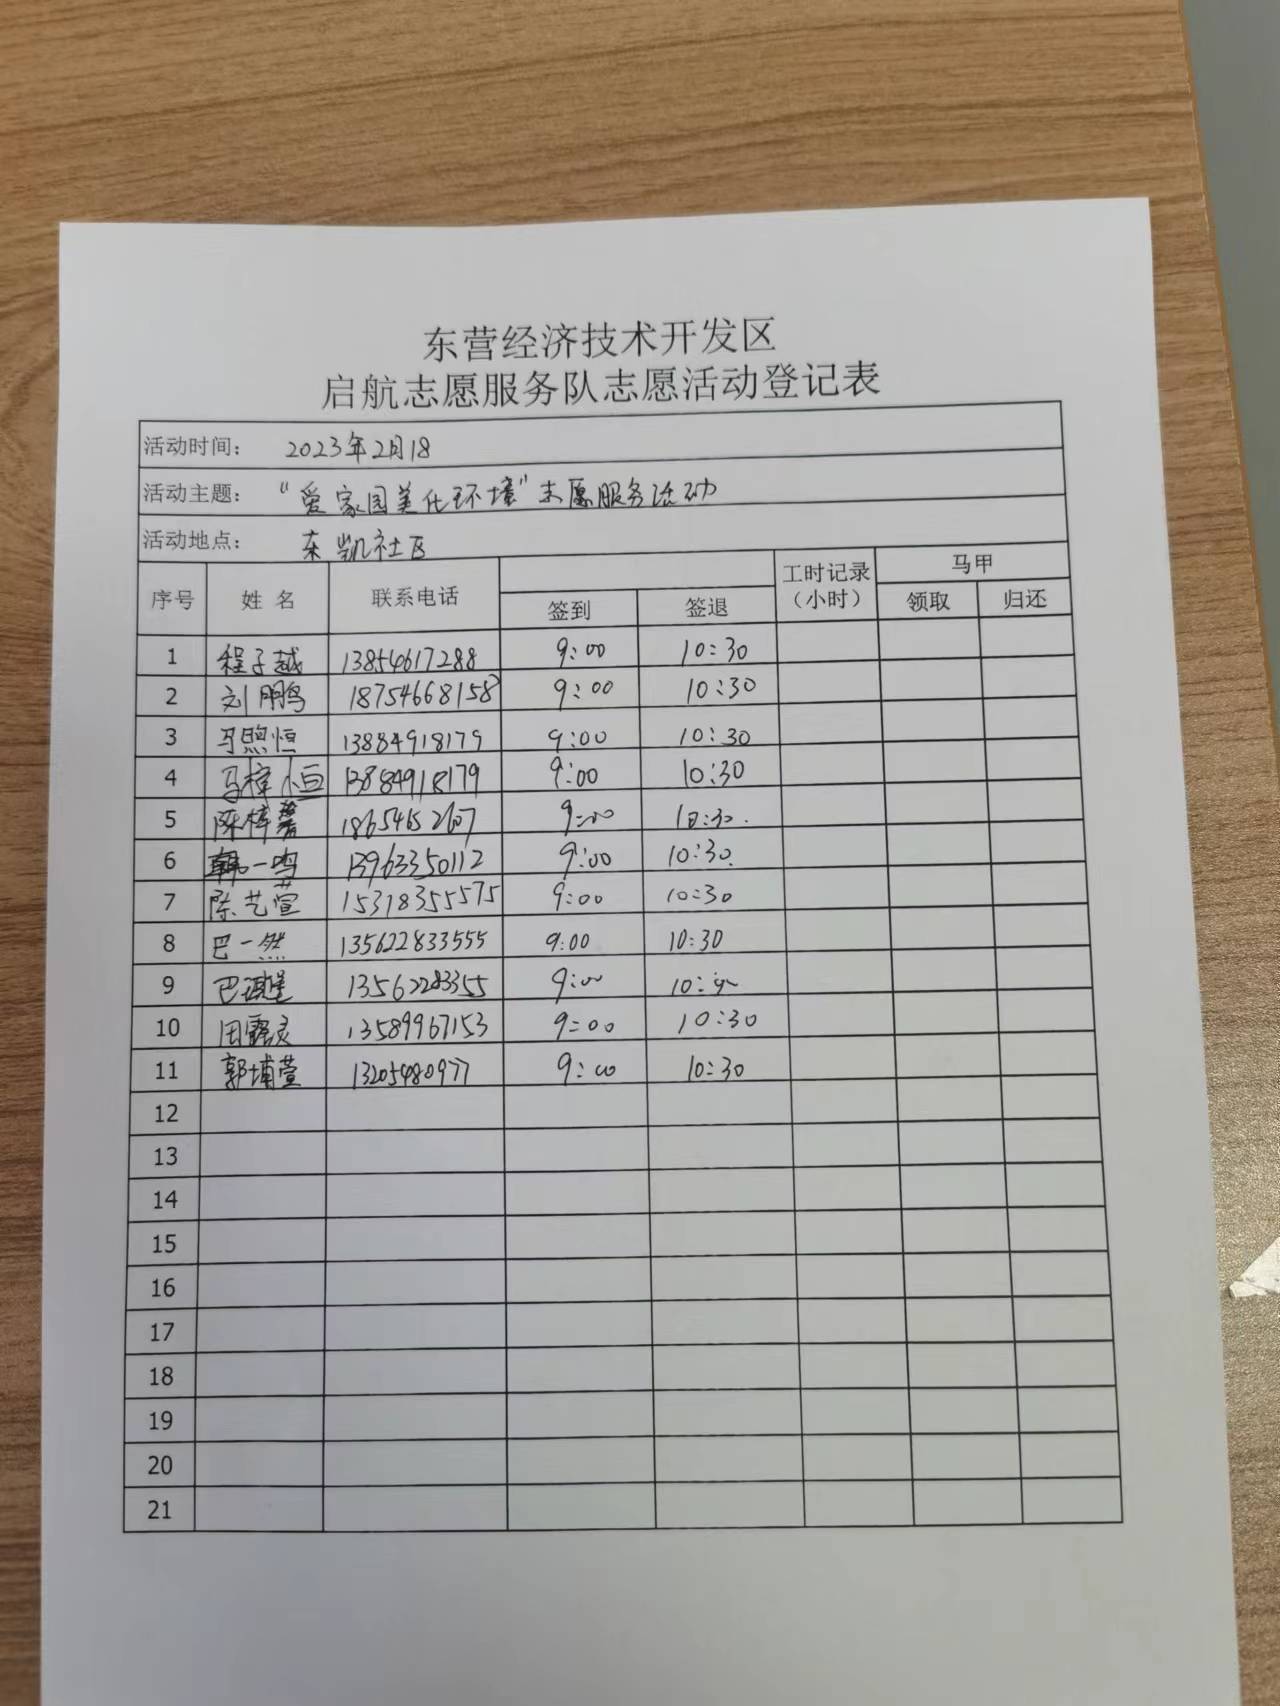 东营经济技术开发区
启航志愿服务队志愿活动登记表
活动时间： 2023年2月18
活动主题： “爱家园美化环境”志愿服务活动
活动地点： 东凯社区
序号 姓名 联系电话 签到 签退 工时记录（小时） 马甲 领取 归还
1 程子越 13854617288 9:00 10:30
2 刘鹏鸣 18754668158 9:00 10:30
3 马煦恒 13884918179 9:00 10:30
4 马梓恒 13884918179 9:00 10:30
5 陈梓馨 18654652607 9:00 10:30.
6 韩一鸣 13963350112 9:00 10:30.
7 陈艺萱 15318355575 9:00 10:30
8 巴一然 135622833555 9:00 10:30
9 巴 13562283355 9:00 10:30
10 田 13589967153 9:00 10:30
11 郭埔萱 13205480977 9:00 10:30
12
13
14
15
16
17
18
19
20
21